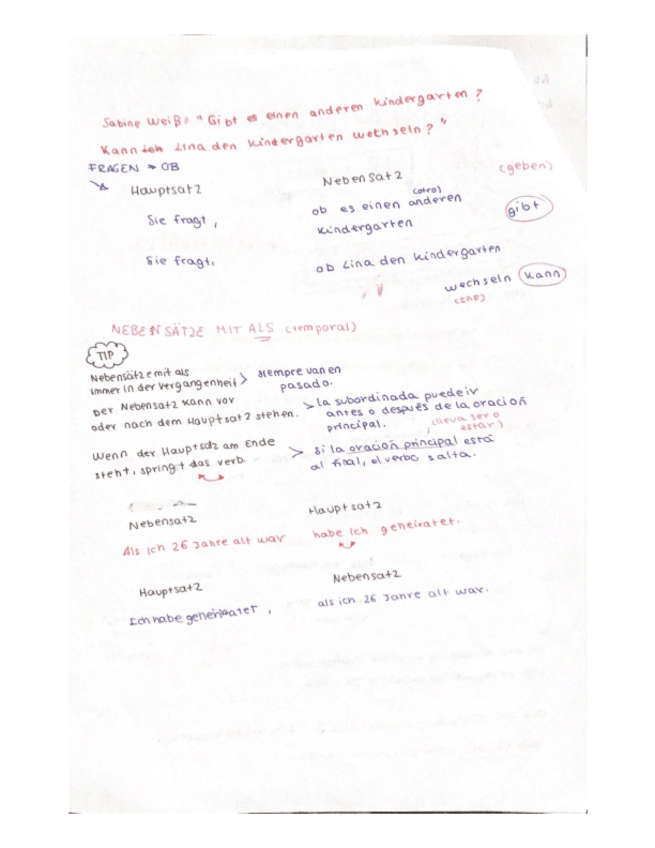 Sabine Weiß: "Gibt es einen anderen Kindergarten?
Kann ich Lina den Kindergarten wechseln?"
FRAGEN → OB
Hauptsatz Nebensatz (geben)
Sie fragt, ob es einen anderen (otro) gibt
Kindergarten
Sie fragt, ob Lina den Kindergarten
wechseln kann
NEBENSÄTZE MIT ALS (temporal)
TIP
Nebensätze mit als > siempre van en
immer in der Vergangenheit pasado.
Der Nebensatz kann vor > la subordinada puede ir
oder nach dem Hauptsatz stehen. antes o después de la oración
principal. (lleva ser o
estar)
Wenn der Hauptsatz am Ende > si la oración principal está
steht, springt das verb. al final, el verbo salta.
Nebensatz Hauptsatz
Als ich 26 Jahre alt war habe ich geheiratet.
Hauptsatz Nebensatz
Ich habe geheiratet, als ich 26 Jahre alt war.